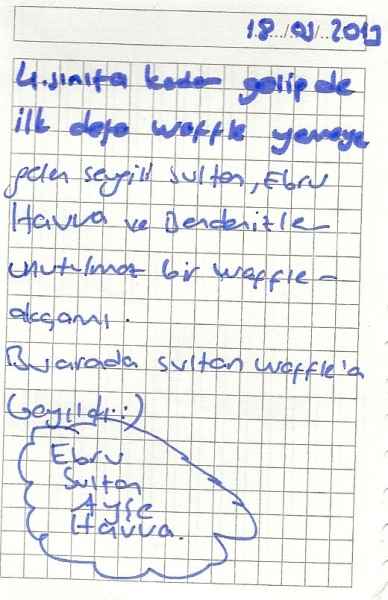 18../01/..2013
4.sınıfa kadar gelip de
ilk defa waffle yemeye
gelen sevgili sultan, Ebru
Havva ve Benden izler
unutulmaz bir waffle -
akşamı.
Bu arada sultan waffle'a
bayıldı:)
Ebru
Sultan
Ayşe
Havva.